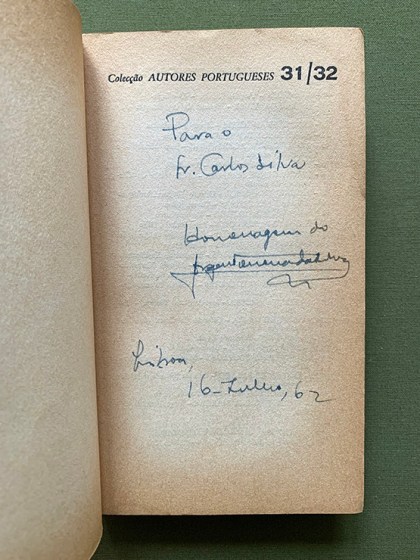 Colecção AUTORES PORTUGUESES 31/32
Para o
Sr. Carlos Silva
Homenagem do
Lisboa,
16-Julho, 62